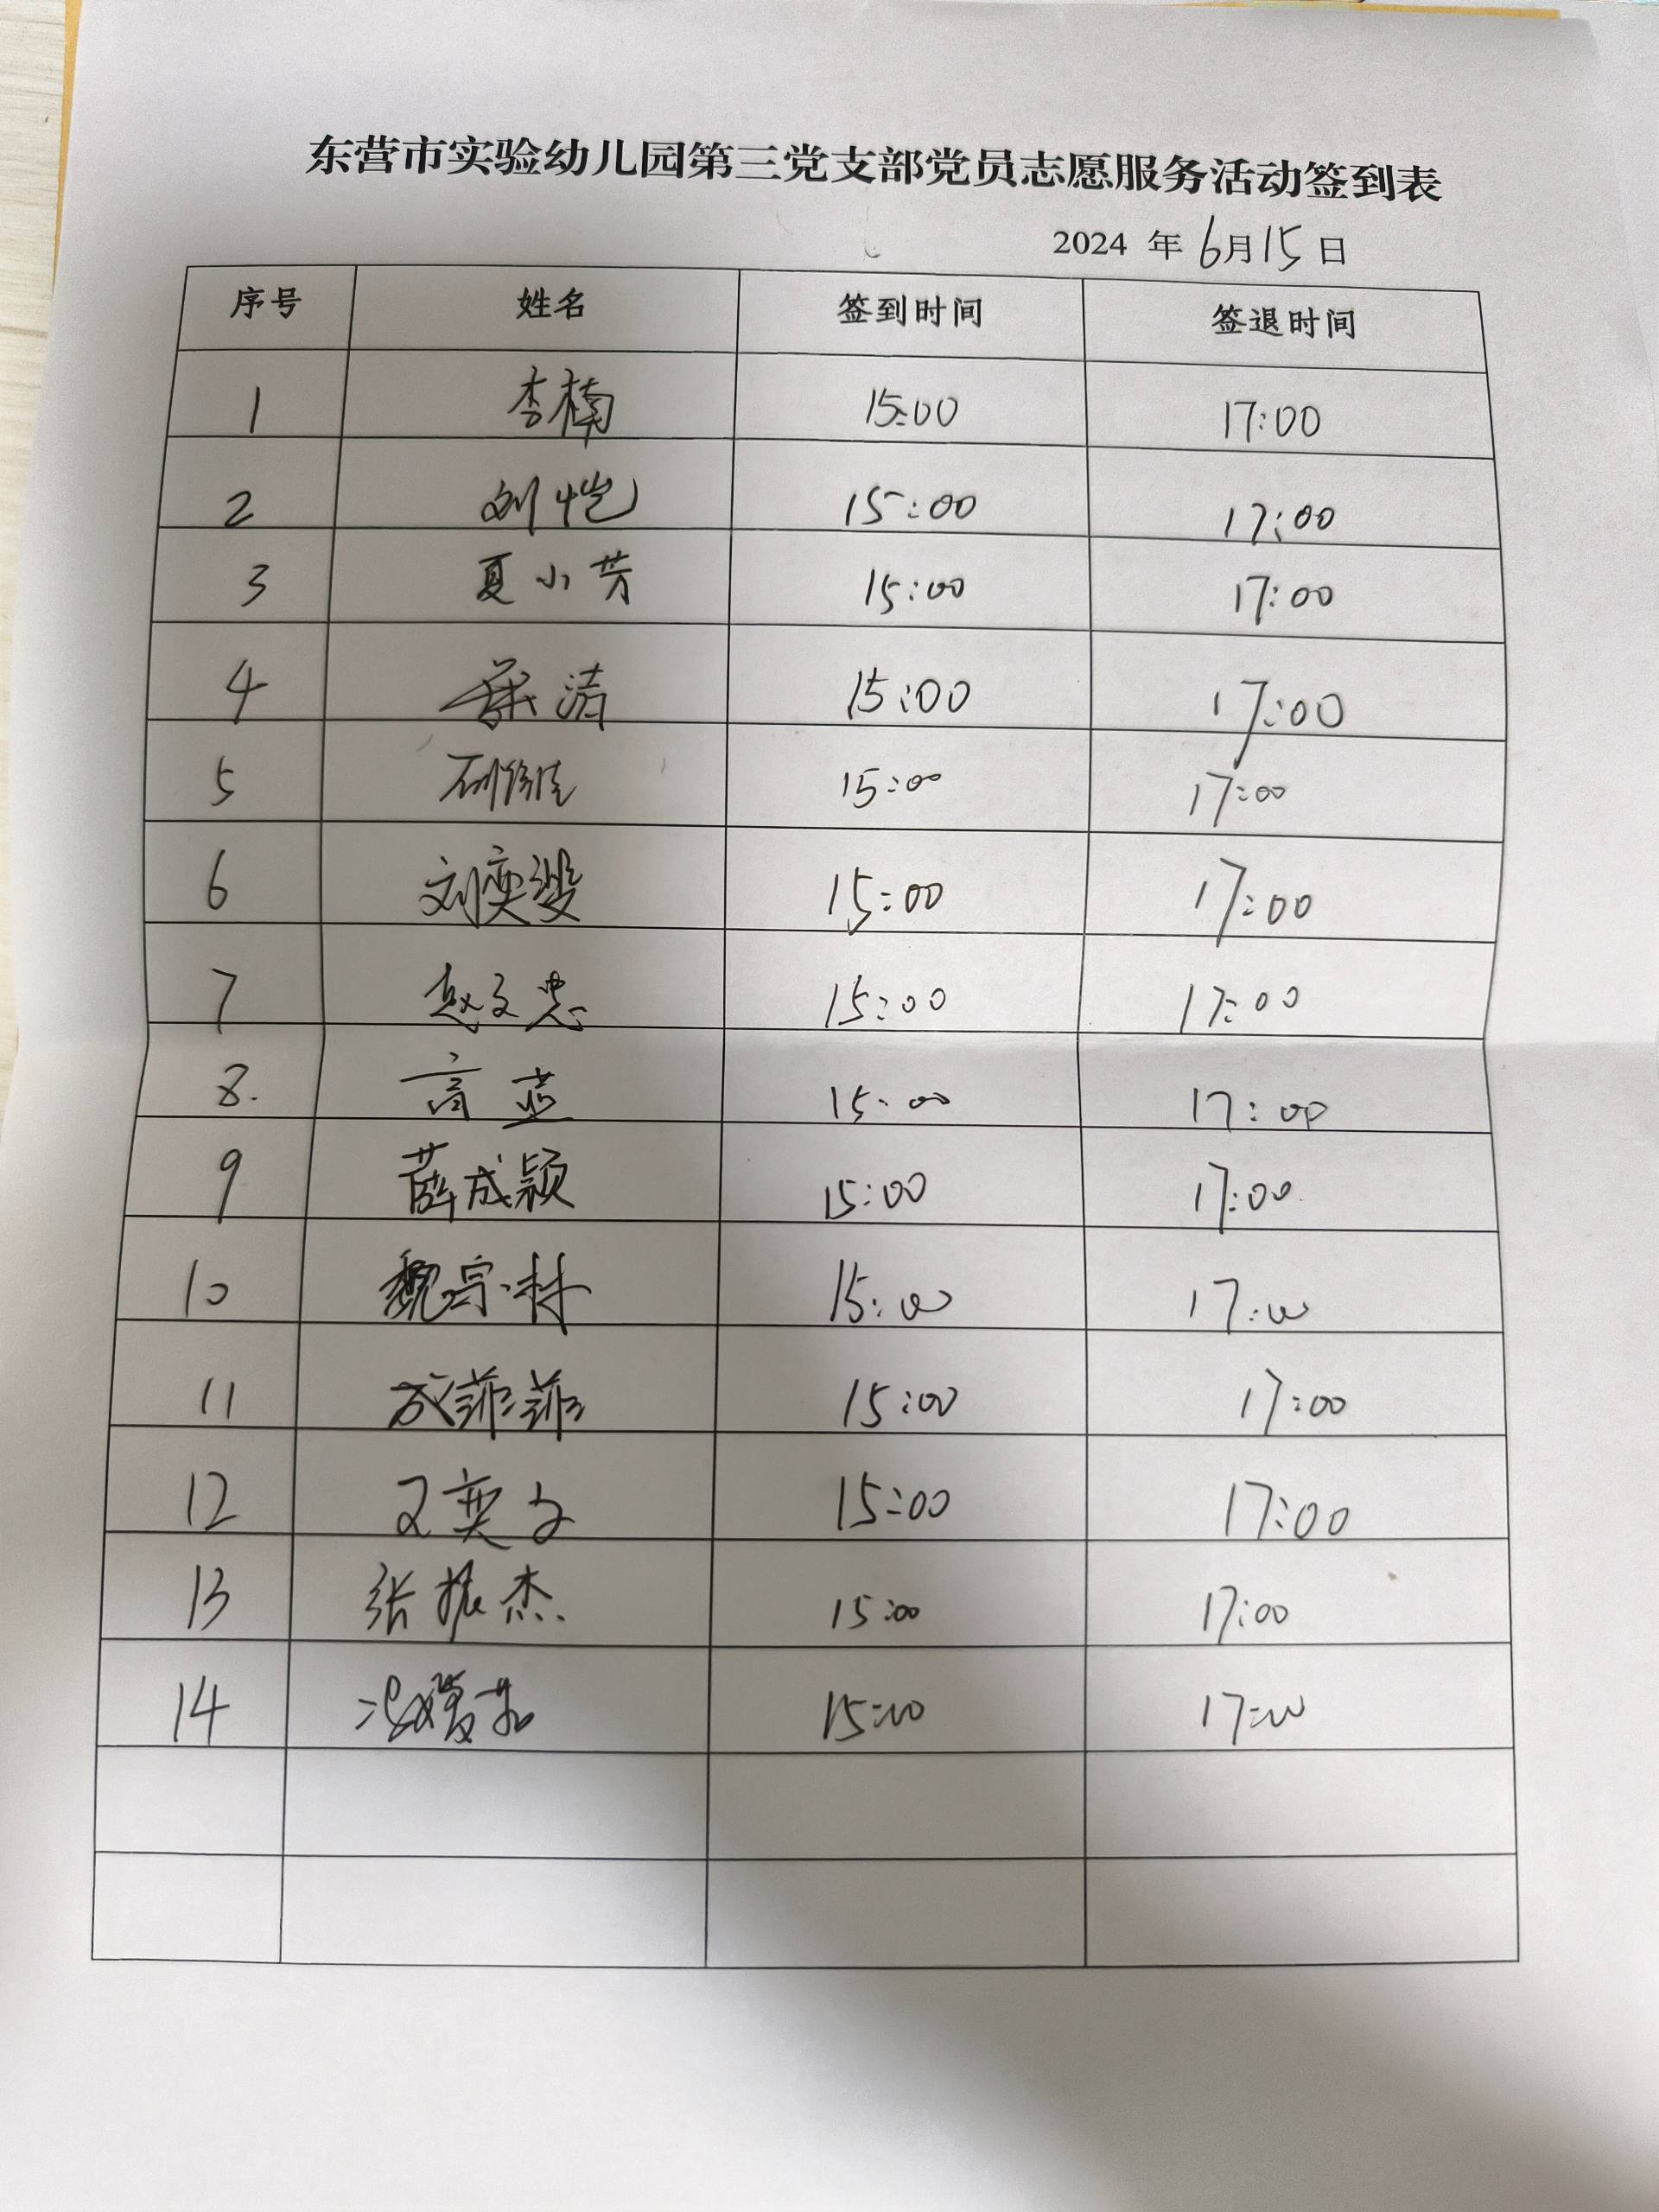 东营市实验幼儿园第三党支部党员志愿服务活动签到表
2024 年 6月15日
序号 姓名 签到时间 签退时间
1 李楠 15:00 17:00
2 刘恺 15:00 17:00
3 夏小芳 15:00 17:00
4 15:00 17:00
5 15:00 17:00
6 刘奕 15:00 17:00
7 赵文忠 15:00 17:00
8. 高蓝 15:00 17:00
9 薛成颖 15:00 17:00
10 魏宗林 15:00 17:00
11 成菲菲 15:00 17:00
12 15:00 17:00
13 张振杰 15:00 17:00
14 15:00 17:00